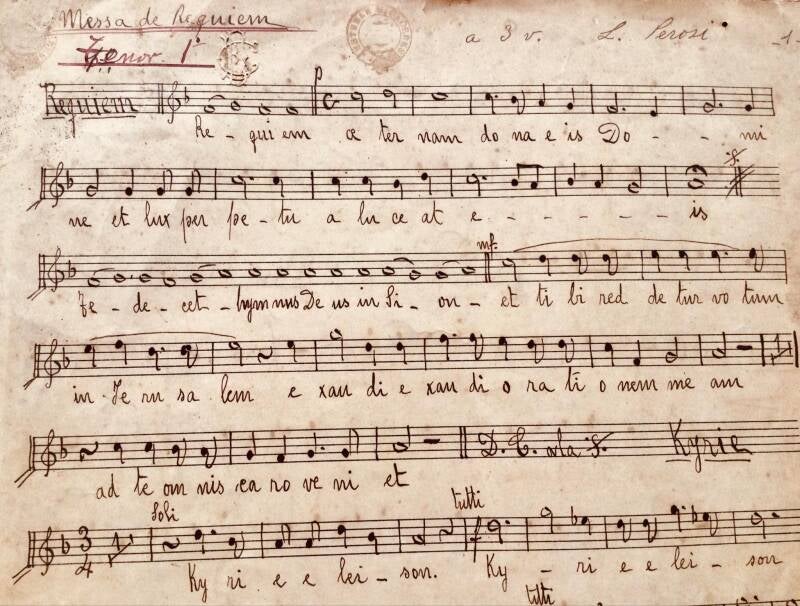 Messa de Requiem
Tenor 1º
a 3 v. L. Perosi -1-
p
Requiem
Re - qui em œ ter nam do na e is Do - - mi
ne et lux per pe - tu a lu ce at e - - - - - - is
mf.
Te - de - cet - hym nus De us in Si - on - et ti bi red de tur vo tum
in Je ru sa lem e xau di e xau di o ra ti o nem me am
1
D. C. Kyrie
ad te om nis ca ro ve ni et
Soli tutti
3 4 1 f
Ky ri e e lei - son. Ky - ri e e lei - son
tutti